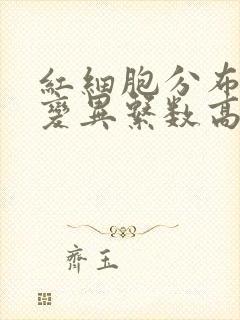 紅細胞分布
變異繫数高
齊玉